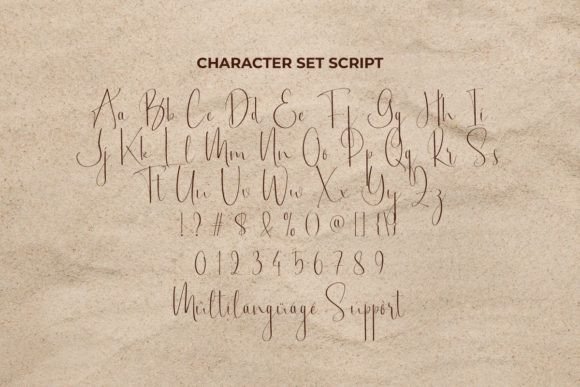 CHARACTER SET SCRIPT
Aa Bb Cc Dd Ee Ff Gg Hh Ii
Jj Kk Ll Mm Nn Oo Pp Qq Rr Ss
Tt Uu Vv Ww Xx Yy Zz
! ? # $ & % ( ) @ [ ] { }
0 1 2 3 4 5 6 7 8 9
Mültilangüage Süppört